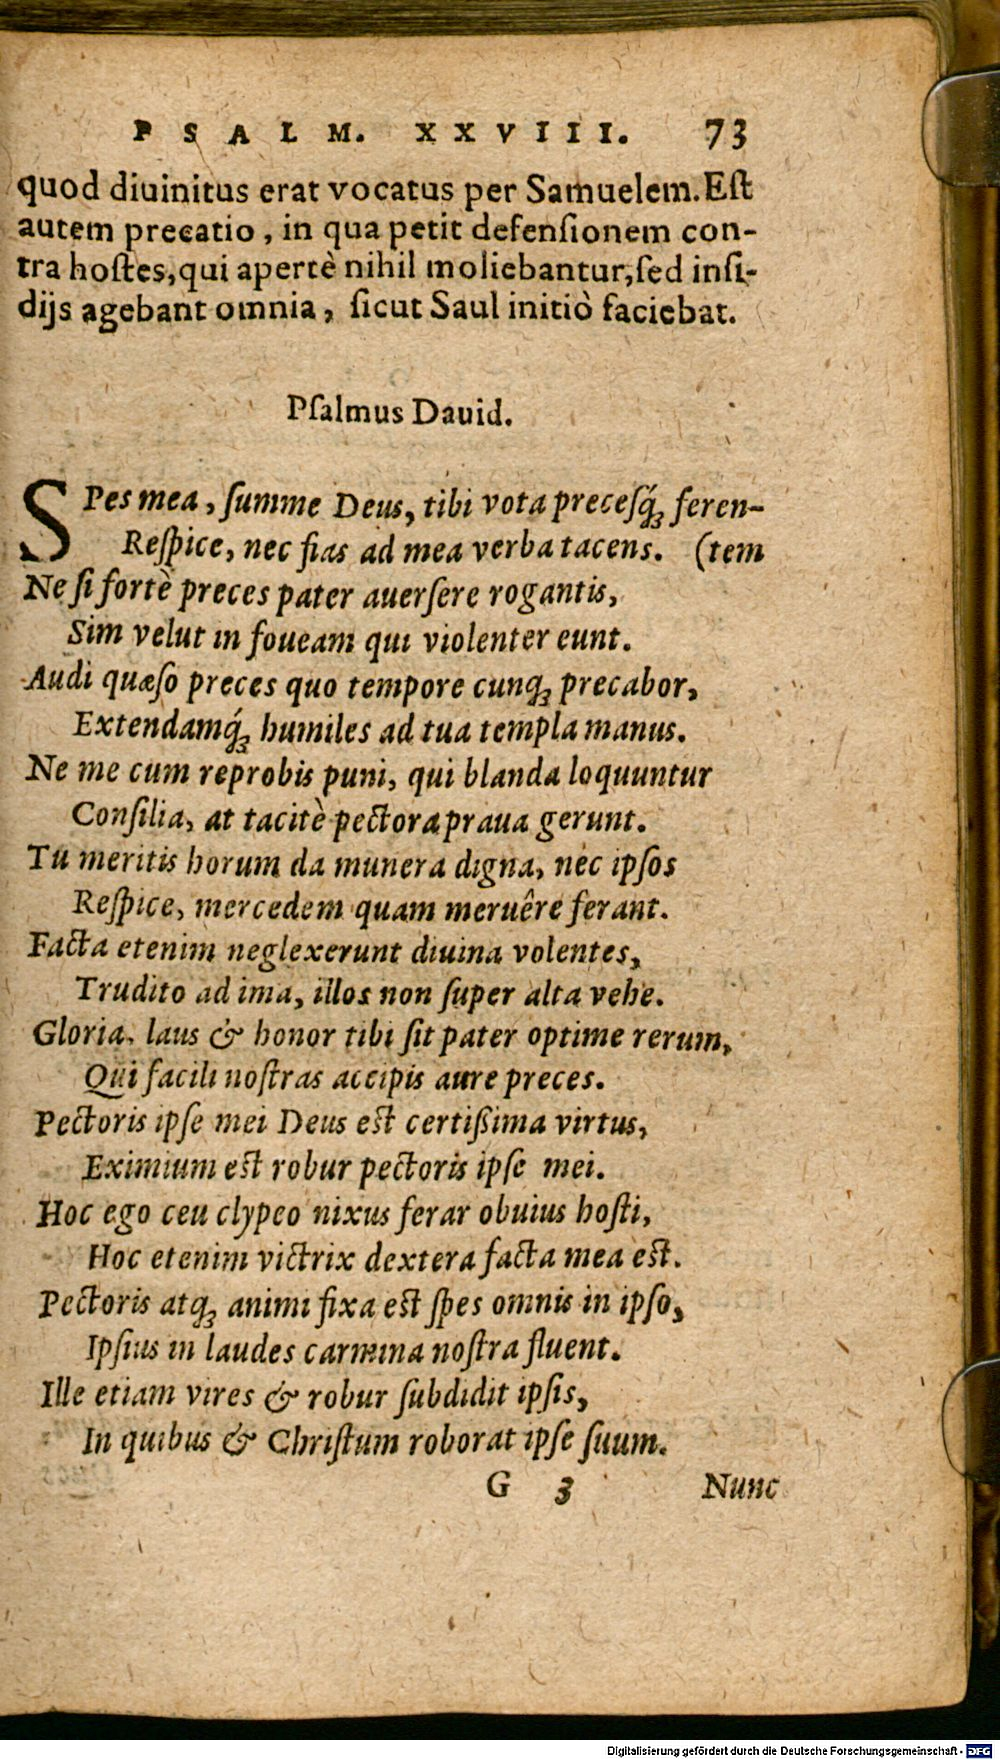 PSALM. XXVIII. 73
quod diuinitus erat vocatus per Samuelem. Eſt
autem precatio, in qua petit defenſionem con-
tra hoſtes, qui apertè nihil moliebantur, ſed inſi-
dijs agebant omnia, ſicut Saul initiò faciebat.
Pſalmus Dauid.
SPes mea, ſumme Deus, tibi vota preceſq́ꝫ feren-
Reſpice, nec fias ad mea verba tacens. (tem
Ne ſi fortè preces pater auerſere rogantis,
Sim velut in foueam qui violenter eunt.
Audi quæſo preces quo tempore cunqꝫ precabor,
Extendamq́ꝫ humiles ad tua templa manus.
Ne me cum reprobis puni, qui blanda loquuntur
Conſilia, at tacitè pectora praua gerunt.
Tu meritis horum da munera digna, nec ipſos
Reſpice, mercedem quam meruêre ferant.
Facta etenim neglexerunt diuina volentes,
Trudito ad ima, illos non ſuper alta vehe.
Gloria, laus & honor tibi ſit pater optime rerum,
Qui facili noſtras accipis aure preces.
Pectoris ipſe mei Deus eſt certißima virtus,
Eximium eſt robur pectoris ipſe mei.
Hoc ego ceu clypeo nixus ferar obuius hoſti,
Hoc etenim victrix dextera facta mea eſt.
Pectoris atqꝫ animi fixa eſt ſpes omnis in ipſo,
Ipſius in laudes carmina noſtra fluent.
Ille etiam vires & robur ſubdidit ipſis,
In quibus & Chriſtum roborat ipſe ſuum.
G 3 Nunc
Digitalisierung gefördert durch die Deutsche Forschungsgemeinschaft - DFG